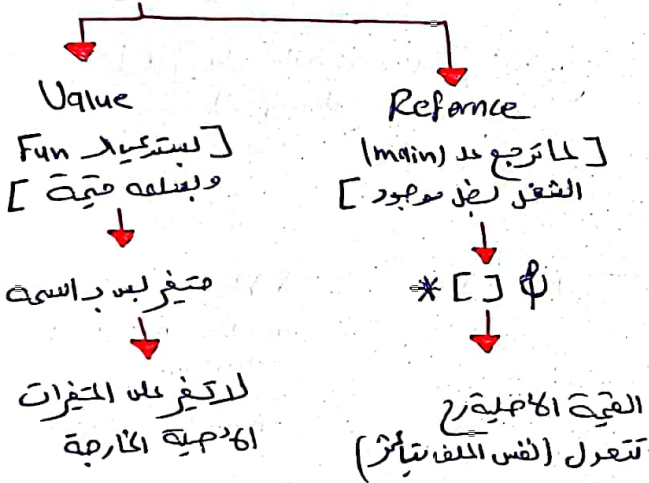 Value
[ بستدعي الـ Fun
وبعطيه قيمة ]
متغير بس بـ اسمه
لا تغير على المتغيرات
الاصلية الخارجة
Refernce
[ لما ترجع عـ (main)
الشغل بضل موجود ]
* [ ] &
القيمة الاصلية رح
تتعدل (نفس الملف بتأثر)